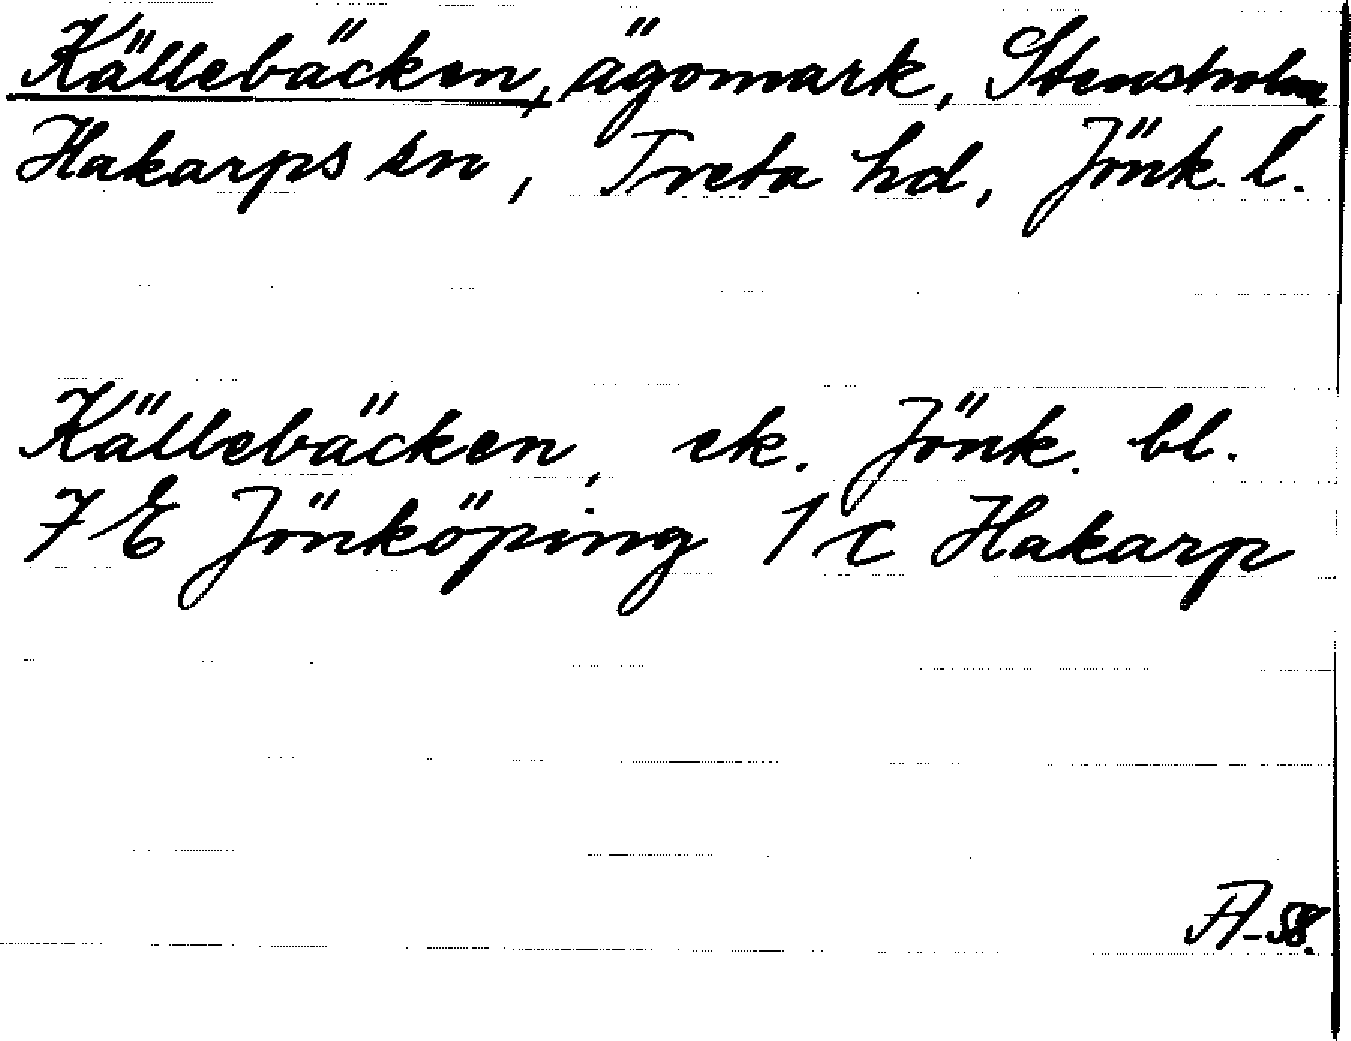 Källebäcken, ägomark, Stensholm
Hakarps sn, Tveta hd, Jönk. l.
Källebäcken, ek. Jönk. bl.
7 E Jönköping 1 c Hakarp
A-58.